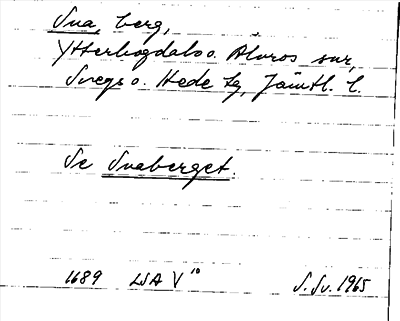 Sua, berg,
Ytterhogdals o. Älvros snr,
Svegs o. Hede tg, Jämtl. l.
Se Suaberget.
1689 LSA V¹⁰ S. Sv. 1965